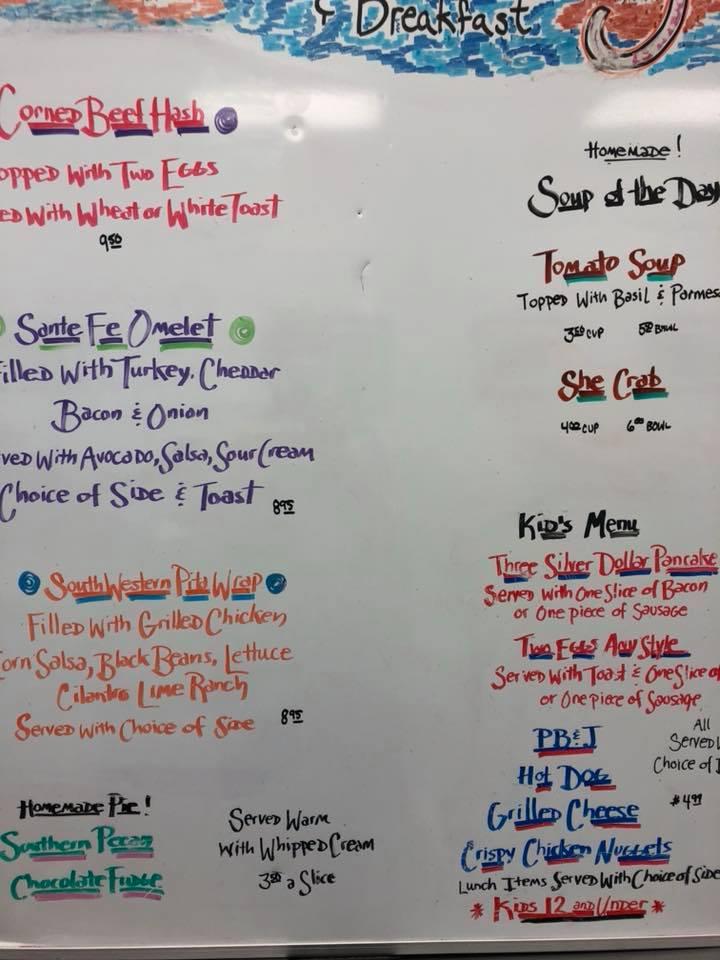 & Breakfast
Corned Beef Hash
opped With Two Eggs
ed With Wheat or White Toast
9.50
Sante Fe Omelet
illed With Turkey, Cheddar
Bacon & Onion
ved With Avocado, Salsa, Sour Cream
Choice of Side & Toast 8.95
South Western Pita Wrap
Filled With Grilled Chicken
orn Salsa, Black Beans, Lettuce
Cilantro Lime Ranch
Served With Choice of Side 8.95
Homemade Pie!
Southern Pecan
Chocolate Fudge
Served Warm
With Whipped Cream
3.50 a Slice
Homemade!
Soup of the Day
Tomato Soup
Topped With Basil & Parmes
3.50 Cup 5.50 Bowl
She Crab
4.00 Cup 6.00 Bowl
Kid's Menu
Three Silver Dollar Pancake
Served With One Slice of Bacon
or One piece of Sausage
Two Eggs Any Style
Served With Toast & One Slice of
or One piece of Sausage
PB&J
Hot Dog
Grilled Cheese
Crispy Chicken Nuggets
All
Served
Choice of
$4.99
Lunch Items Served With Choice of Side
* Kids 12 and Under *